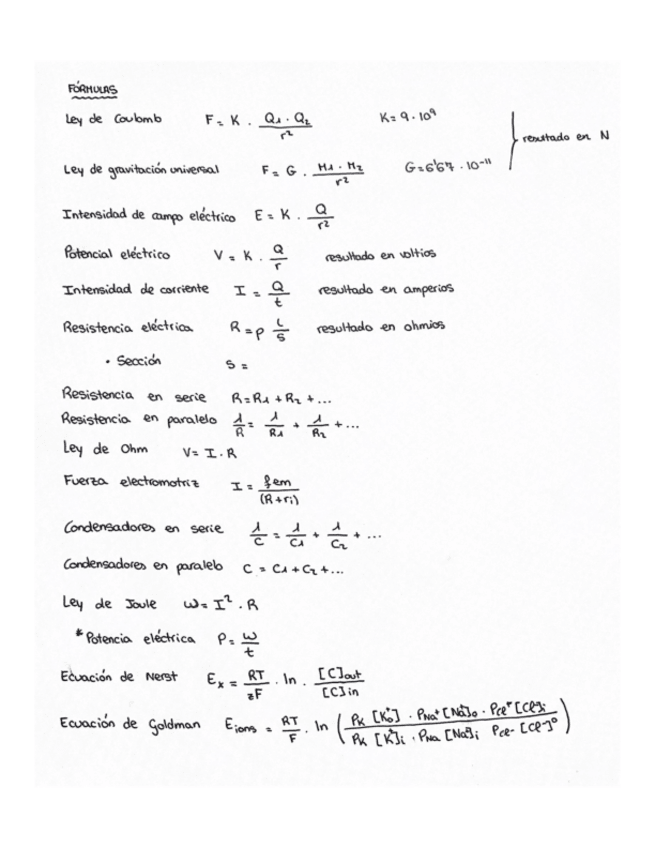 FÓRMULAS
Ley de Coulomb F = K · Q1 · Q2 / r² K = 9 · 10⁹
resultado en N
Ley de gravitación universal F = G · M1 · M2 / r² G = 6'67 · 10⁻¹¹
Intensidad de campo eléctrico E = K · Q / r²
Potencial eléctrico V = K · Q / r resultado en voltios
Intensidad de corriente I = Q / t resultado en amperios
Resistencia eléctrica R = ρ L / S resultado en ohmios
· Sección S =
Resistencia en serie R = R1 + R2 + ...
Resistencia en paralelo 1/R = 1/R1 + 1/R2 + ...
Ley de Ohm V = I · R
Fuerza electromotriz I = fem / (R + ri)
Condensadores en serie 1/C = 1/C1 + 1/C2 + ...
Condensadores en paralelo C = C1 + C2 + ...
Ley de Joule W = I² · R
* Potencia eléctrica P = W / t
Ecuación de Nerst Ex = RT / zF · ln · [C]out / [C]in
Ecuación de Goldman Eions = RT / F · ln ( PK [K⁺o] · PNa⁺ [Na⁺]o · PCl⁻ [Cl⁻]i / PK [K⁺]i · PNa [Na⁺]i PCl⁻ [Cl⁻]o )